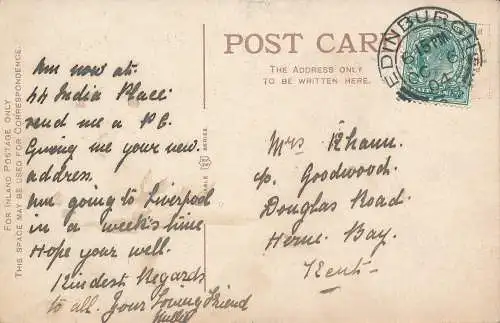 POST CARD
THE ADDRESS ONLY
TO BE WRITTEN HERE.
EDINBURGH
6.15 PM
OC 6
04
FOR INLAND POSTAGE ONLY
THIS SPACE MAY BE USED FOR CORRESPONDENCE.
SERIES.
Am now at.
44 India Place.
send me a P.C.
Giving me your new.
address.
Am going to Liverpool
in a week's time
Hope your well.
Kindest Regards
to all. Your Loving Friend
Mrs
c/o Goodwood.
Douglas Road.
Herne Bay.
Kent